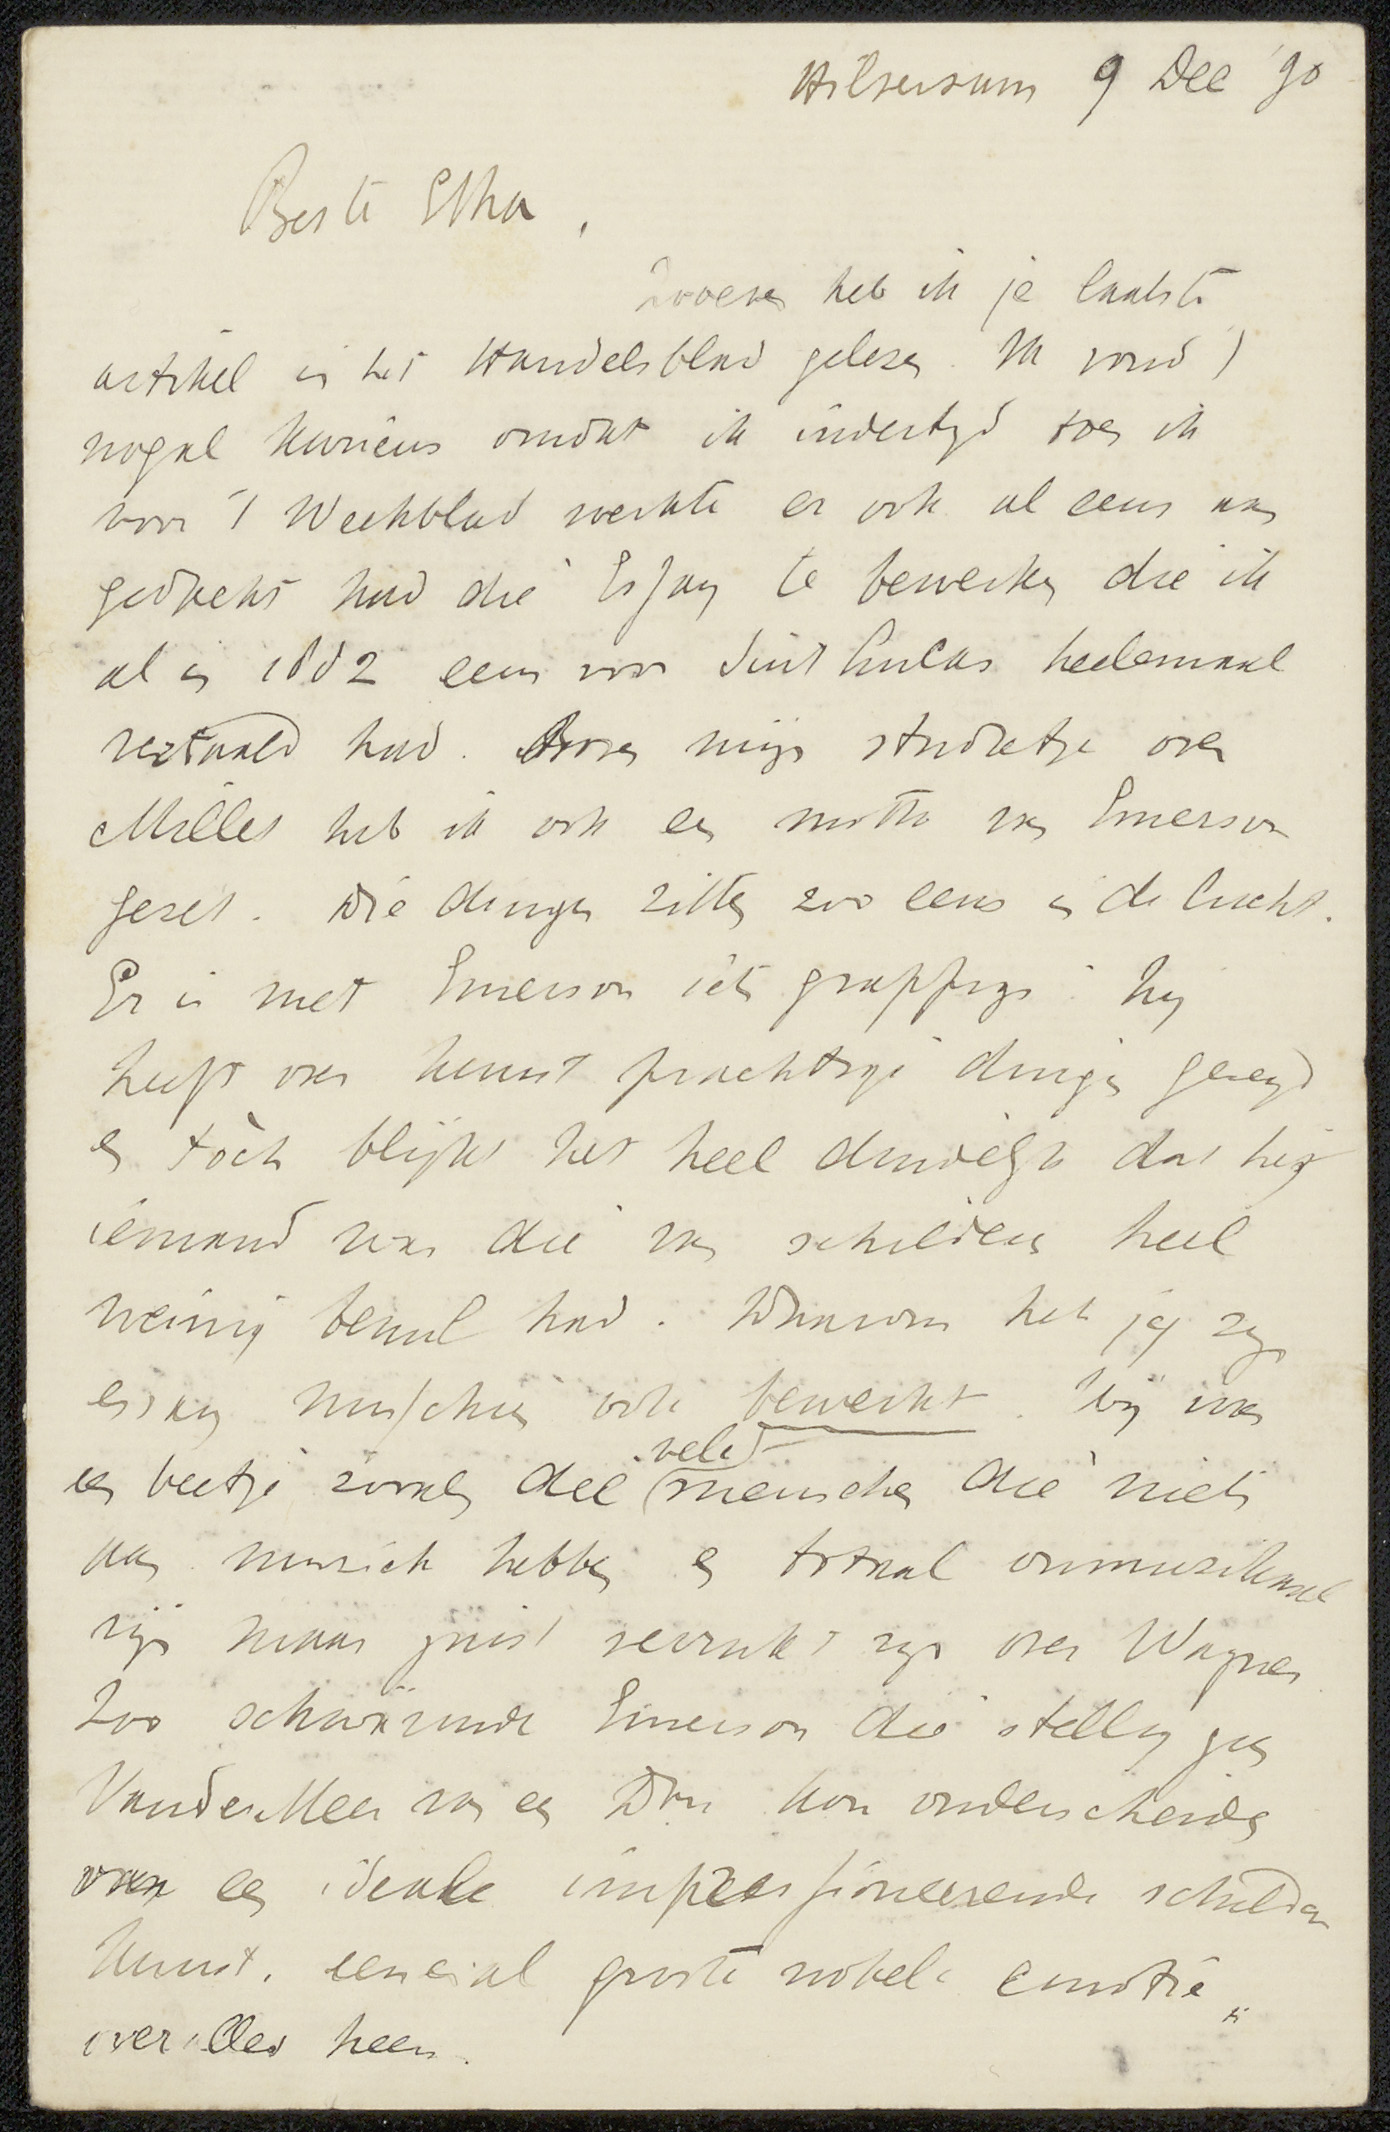 Hilversum 9 Dec '90
Beste Etha,
Zooeven heb ik je laatste
artikel in het Handelsblad gelezen. Ik vond 't
nogal kurieus omdat ik indertijd toen ik
voor 't Weekblad werkte er ook al eens aan
gedacht had die Essay te bewerken die ik
al in 1882 eens voor Sint Lucas heelemaal
vertaald had. Boven mijn studietje over
Millet heb ik ook een motto van Emerson
gezet. Die dingen zitten zoo eens in de lucht.
Er is met Emerson iets grappigs: hij
heeft over kunst prachtige dingen gezegd
en tòch blijkt het heel duidelijk dat hij
iemand was die van schilderen heel
weinig benul had. Daarom heb jij zijn
essay misschien ook bewerkt. Hij was
een beetje zooals die veel menschen die niets
aan muziek hebben en totaal onmuzikaal
zijn maar juist verrukt zijn over Wagner
Zoo schwärmde Emerson die stellig geen
Van der Meer van een Dou kon onderscheiden
over een ideale impressioneerende schilder
kunst, eensciel groote nobele emotie
over alles heen.